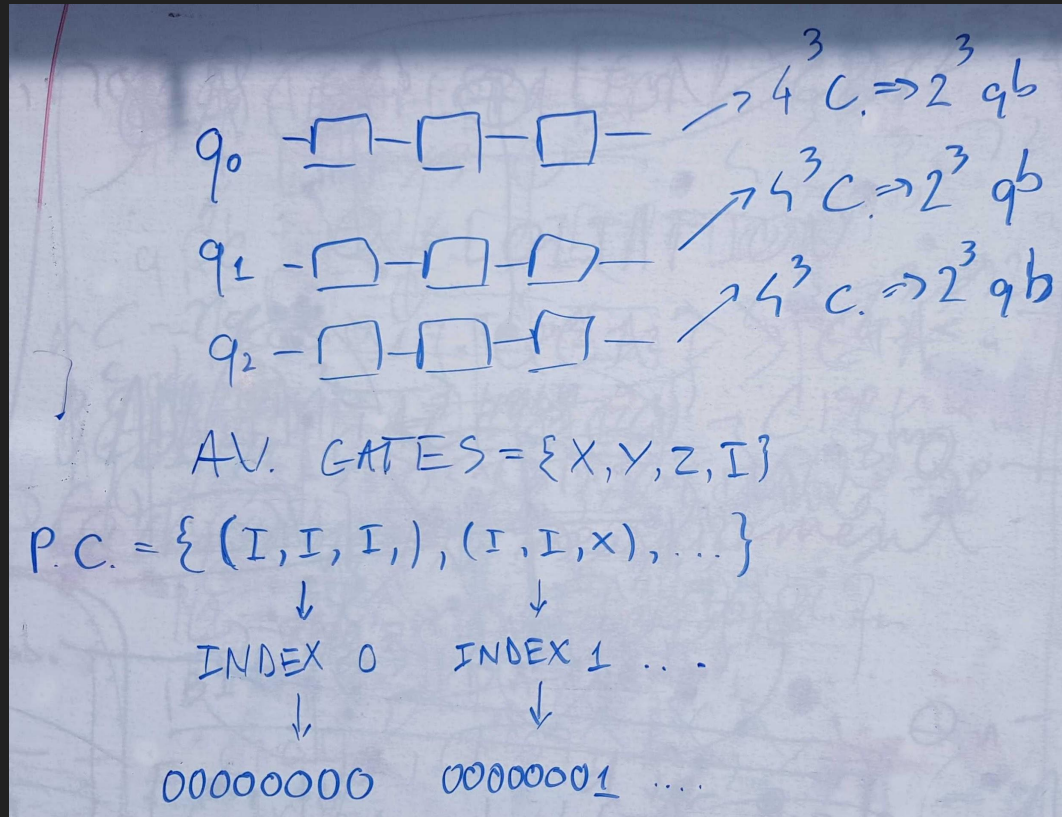 q₀ → 4³ C. ⇒ 2³ qb
q₁ → 4³ C. ⇒ 2³ qb
q₂ → 4³ C. ⇒ 2³ qb
AV. GATES = {X, Y, Z, I}
P.C. = { (I, I, I,), (I, I, X), ... }
↓ ↓
INDEX 0 INDEX 1 ...
↓ ↓
00000000 00000001 ....